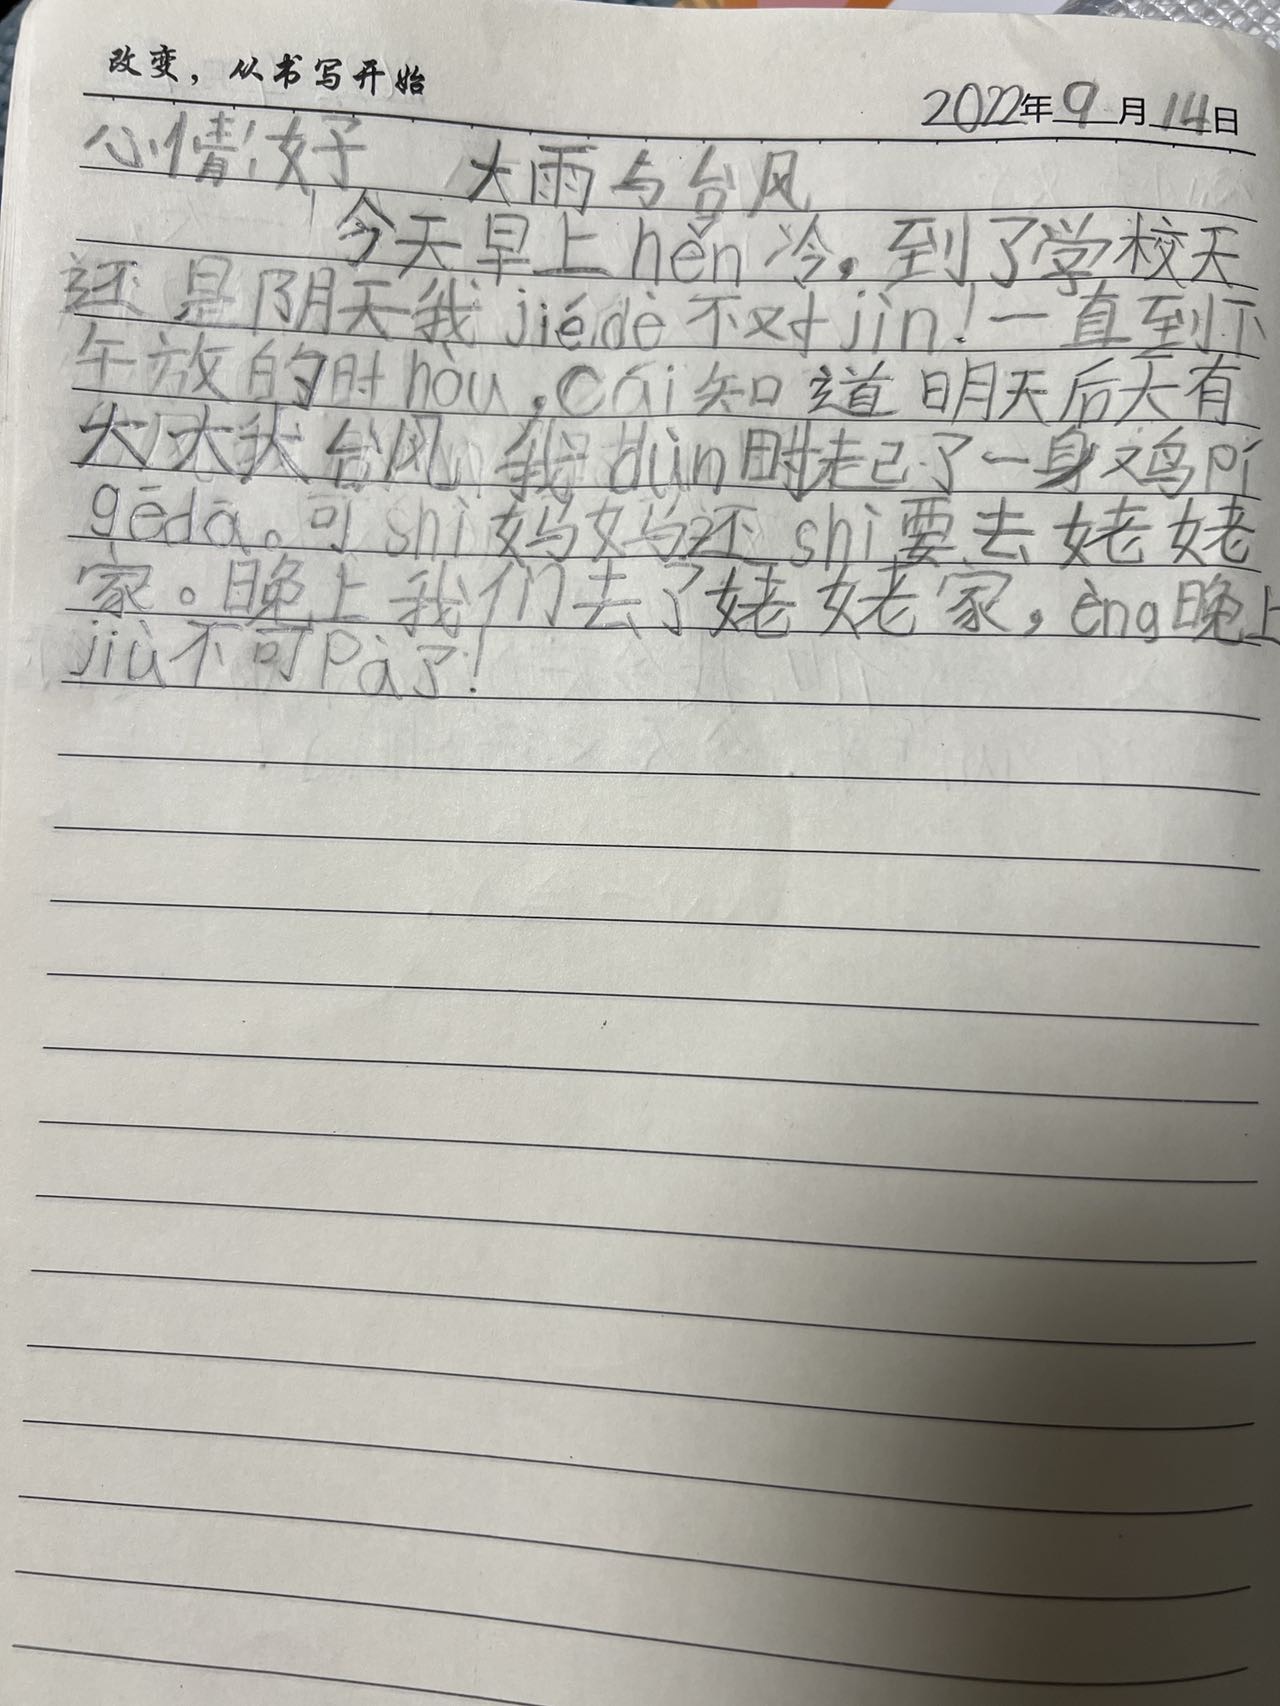 改变，从书写开始
2022年9月14日
心情:好 大雨与台风
今天早上hěn冷，到了学校天
还是阴天我jiédè不对jìn！一直到下
午放的时hòu，cái知道明天后天有
大大大台风，我dùn时起了一身鸡pí
gēdā。可shì妈妈还shì要去姥姥
家。晚上我们去了姥姥家，èng晚上
jiù不可pà了！